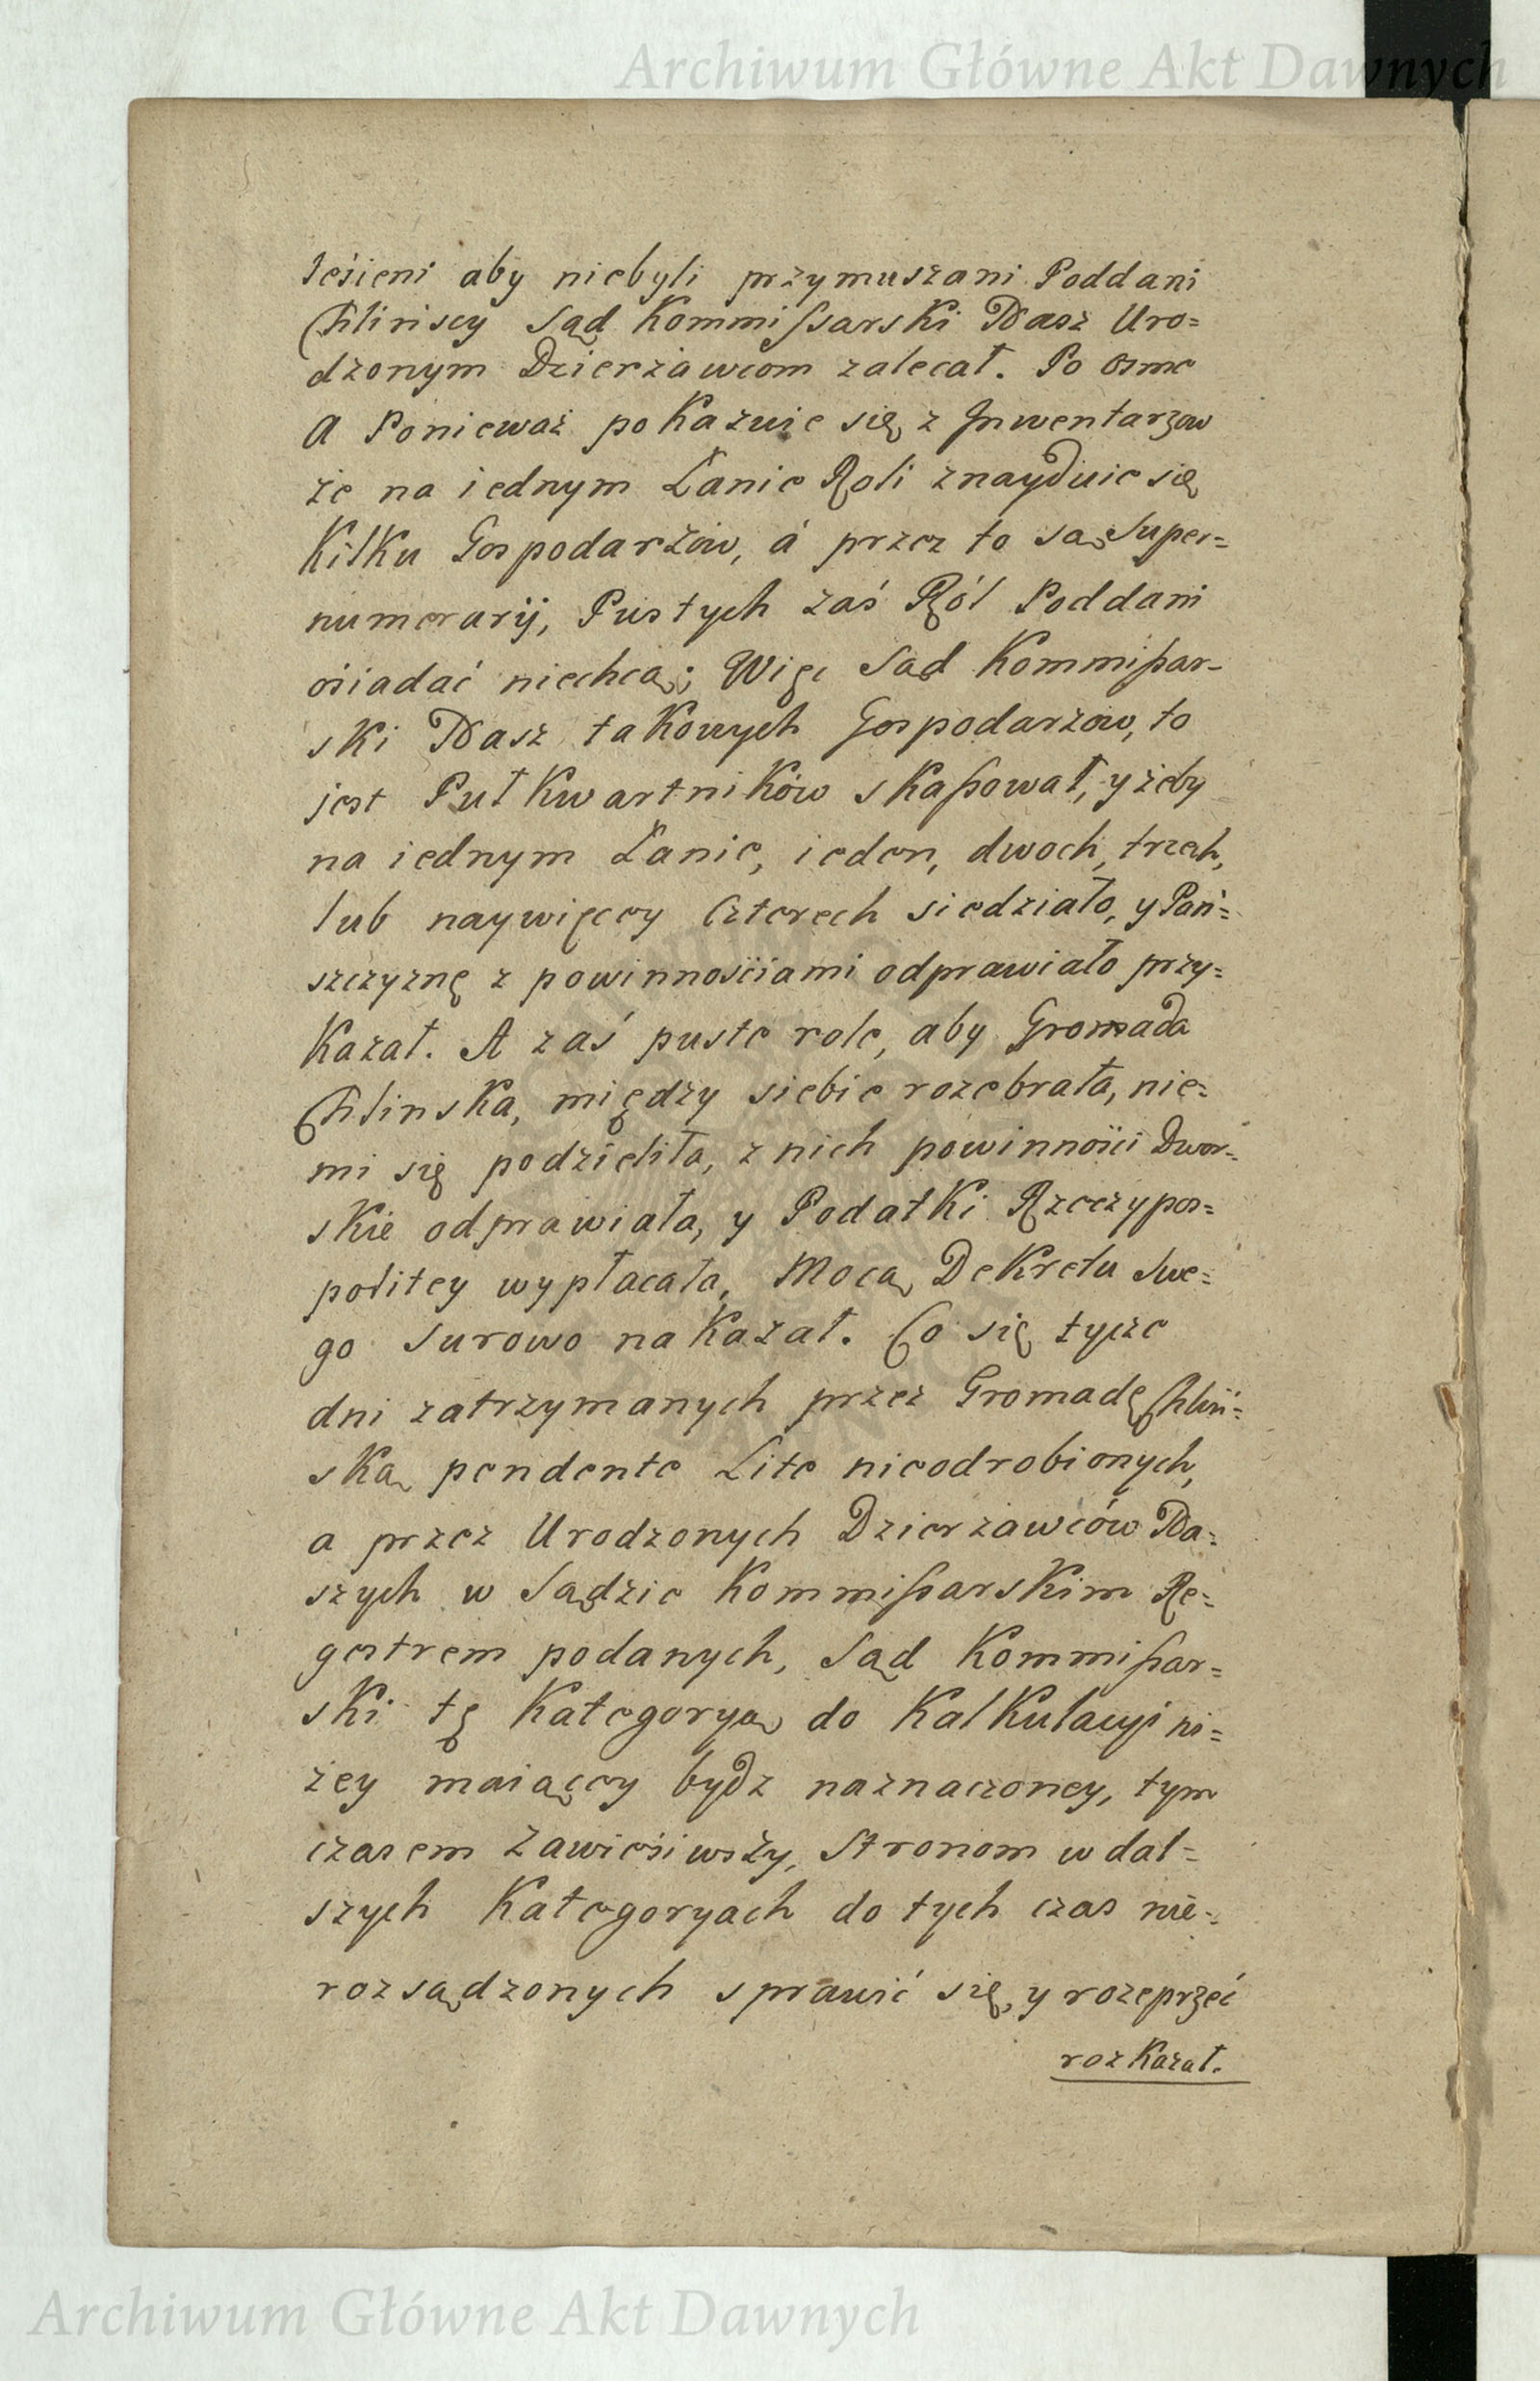 Archiwum Główne Akt Dawnych
Jeśieni aby niebyli przymuszani Poddani
Chlinscy Sąd Kommissarski Nasz Uro=
dzonym Dzierżawcom zalecał. Po osme
A Ponieważ pokazuie się z Inwentarzow
że na iednym Łanie Roli znayduie się
Kilku Gospodarzow, á przez to są Super=
numerarij, Pustych zaś Ról Poddani
ośiadać niechcą; Więc Sąd Kommissar-
ski Nasz takowych Gospodarzow, to
jest Puł Kwartników skassował, y żeby
na iednym Łanie, ieden, dwoch, trzech,
lub naywięcey Czterech siedziało, y Pań=
szczyznę z powinnościami odprawiało przy=
kazał. A zaś puste role, aby Gromada
Chlinska, między siebie rozebrała, nie=
mi się podzieliła, z nich powinności Dwor=
skie odprawiała, y Podatki Rzeczypos=
politey wypłacała, Mocą Dekretu Swe=
go Surowo nakazał. Co się tycze
dni zatrzymanych przez Gromadę Chliń=
ską pendente Lite nieodrobionych,
a przez Urodzonych Dzierżawców Na=
szych w Sądzie Kommissarskim Re=
gestrem podanych, Sąd Kommissar=
ski tę Kategoryą do Kalkulacyi ni=
żey maiącey bydz naznaczoney, tym
czasem zawieśiwszy, Stronom w dal=
szych Kategoryach do tych czas nie=
rozsądzonych sprawić się, y rozeprzeć
rozkazał.
Archiwum Główne Akt Dawnych